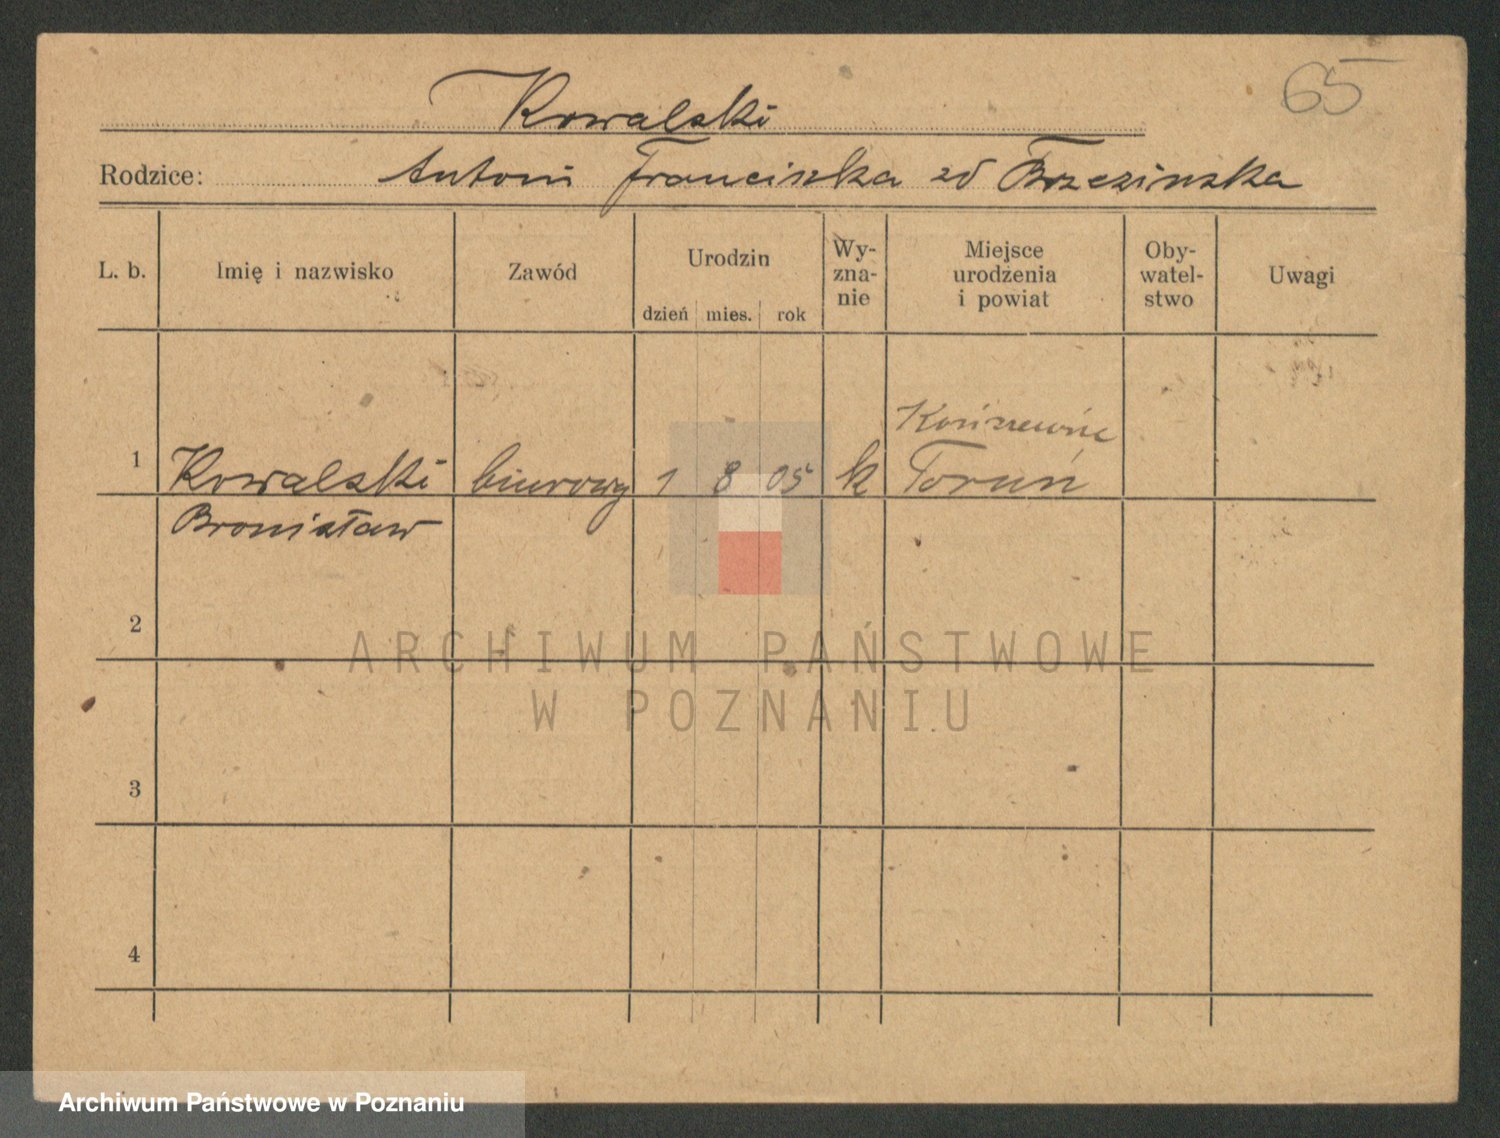 65
Kowalski
Rodzice: Antoni Franciszka zd Brzezinska
L. b.
Imię i nazwisko
Zawód
Urodzin
dzień mies. rok
Wy-
zna-
nie
Miejsce
urodzenia
i powiat
Oby-
watel-
stwo
Uwagi
1 Kowalski biurowy 1 8 05 k Toruń
Bronisław
2
3
4
ARCHIWUM PAŃSTWOWE
W POZNANIU
Archiwum Państwowe w Poznaniu